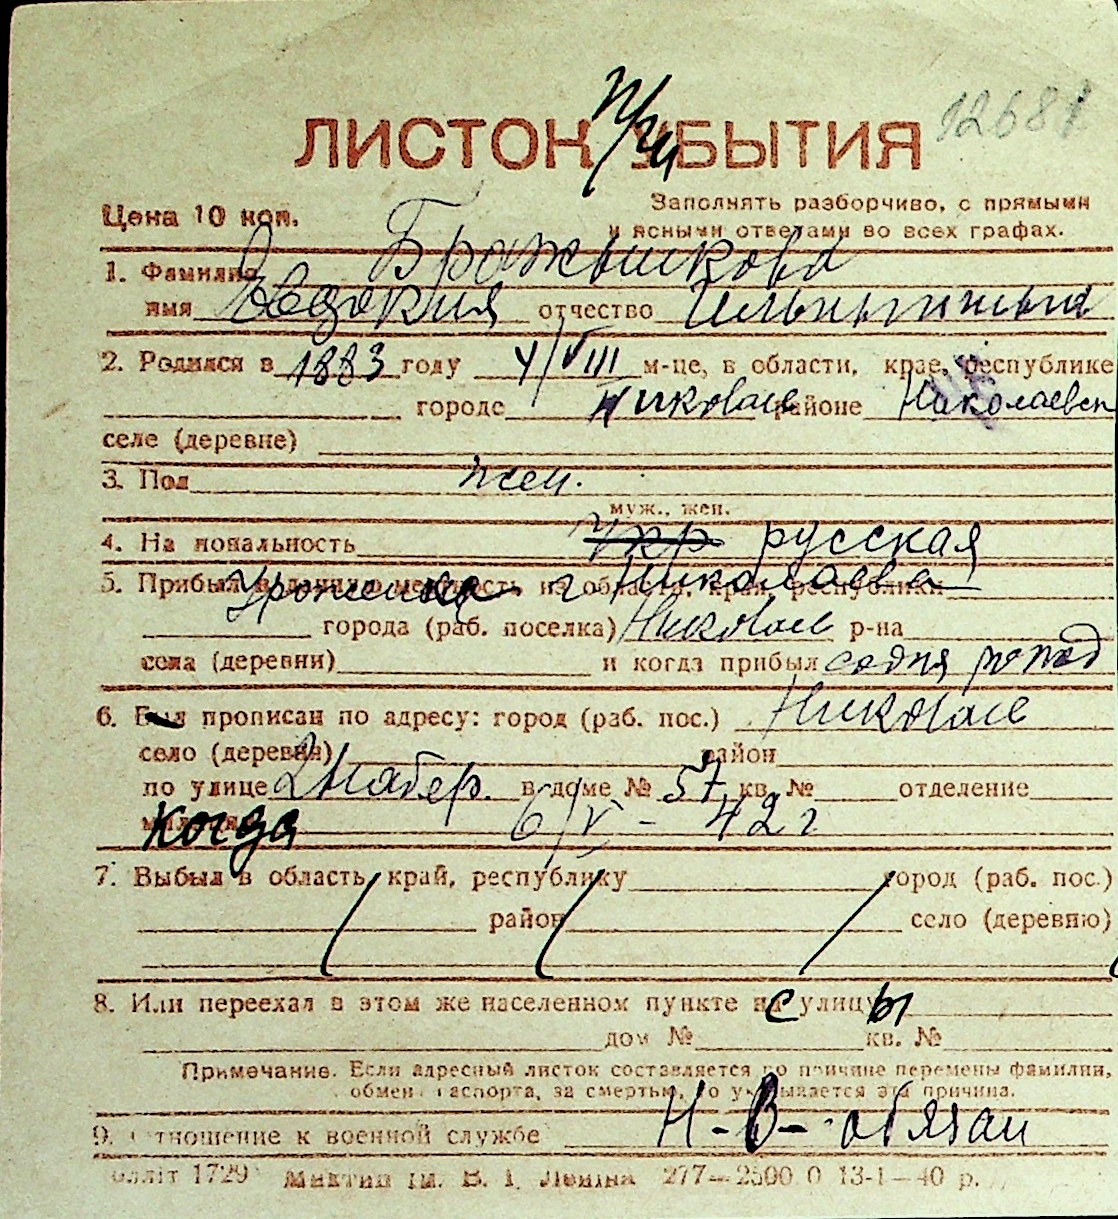 12681
ЛИСТОК при УБЫТИЯ
Цена 10 коп.
Заполнять разборчиво, с прямыми
и ясными ответами во всех графах.
1. Фамилия Бражникова
имя Евдокия отчество Ильинична
2. Родился в 1883 году 4/VIII м-це, в области, крае, республике
городе Николаев районе Николаевск
селе (деревне)
3. Пол жен.
муж., жен.
4. Национальность укр русская
5. Прибыл в данную местность из области, края, республики
Уроженка г Николаева
города (раб. поселка) Николаев р-на
села (деревни) и когда прибыл со дня рожд
6. Был прописан по адресу: город (раб. пос.) Николаев
село (деревня) район
по улице 2 Набер. в доме № 57 кв. № отделение
когда 6/V - 42 г
7. Выбыл в область, край, республику город (раб. пос.)
район село (деревню)
8. Или переехал в этом же населенном пункте на с улицы
дом № кв. №
Примечание. Если адресный листок составляется по причине перемены фамилии,
обмен паспорта, за смертью, то указывается эта причина.
9. Отношение к военной службе Н-В-обязан
1729 им. В. І. Леніна 277—2500 0 13-1—40 р.